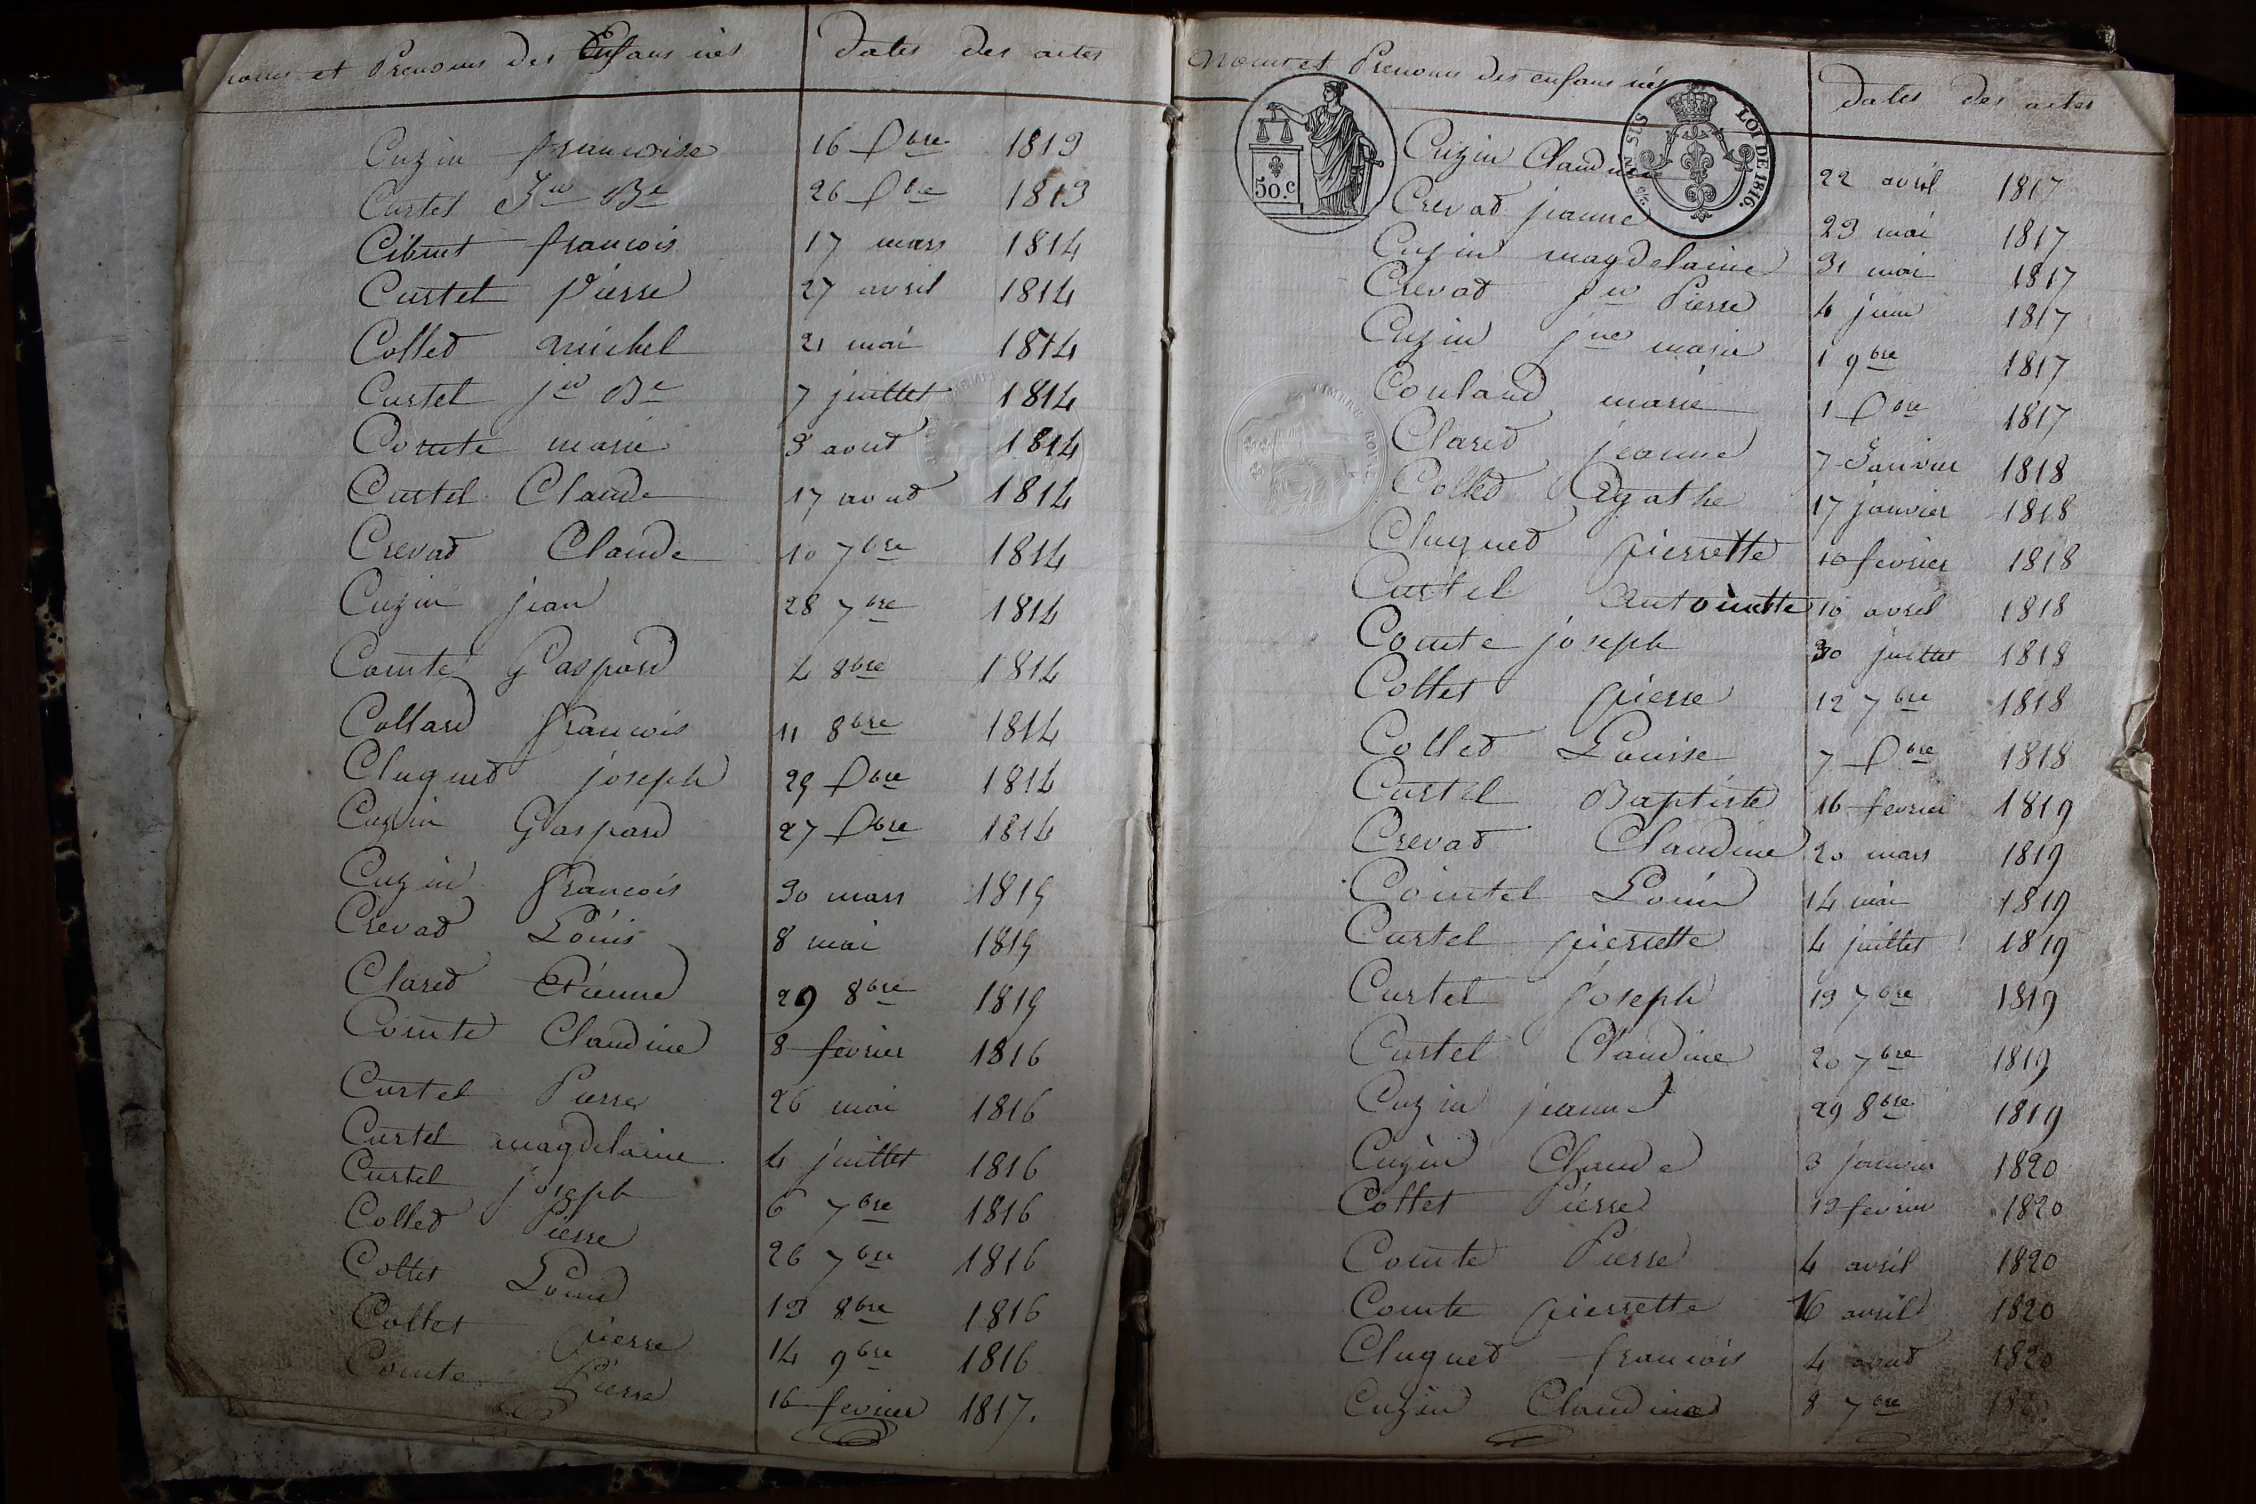 noms et Prenoms des Enfans nés dates des actes
Cuzin francoise 16 Xbre 1813
Curtet Jn Bte 26 Xbre 1813
Cibuet francois 17 mars 1814
Curtet Pierre 27 avril 1814
Collet michel 21 mai 1814
Curtet jn Bte 7 juillet 1814
Comte marie 3 aout 1814
Curtel Claude 17 aout 1814
Crevat Claude 10 7bre 1814
Cuzin jean 28 7bre 1814
Comte Gaspard 4 8bre 1814
Collard francois 11 8bre 1814
Cluquet joseph 25 Xbre 1814
Cuzin Gaspard 27 Xbre 1814
Cuzin francois 30 mars 1815
Crevat Louis 8 mai 1815
Claret Etienne 29 8bre 1815
Comte Claudine 8 fevrier 1816
Curtet Pierre 26 mai 1816
Curtet magdelaine 4 juillet 1816
Curtet joseph 6 7bre 1816
Collet Pierre 26 7bre 1816
Collet Louis 13 8bre 1816
Collet pierre 14 9bre 1816
Comte Pierre 16 fevrier 1817.
Noms et Prenoms des enfans nés dates des actes
50.c
LOI DE 1816.
Cuzin Claudine 22 avril 1817
Crevat jeanne 23 mai 1817
Cuzin magdelaine 31 mai 1817
Crevat jn Pierre 4 juin 1817
Cuzin jne marie 1 9bre 1817
Coulard marie 1 Xbre 1817
Claret jeanne 7 Janvier 1818
Collet Agathe 17 janvier 1818
TIMBRE ROYAL
Cluquet pierrette 10 fevrier 1818
Curtel Antoinette 10 avril 1818
Comte joseph 30 juillet 1818
Collet pierre 12 7bre 1818
Collet Louise 7 Xbre 1818
Curtel Baptiste 16 fevrier 1819
Crevat Claudine 20 mars 1819
Cointel Louis 14 mai 1819
Curtel pierrette 4 juillet 1819
Curtet joseph 13 7bre 1819
Curtel Claudine 20 7bre 1819
Cuzin jeanne 29 8bre 1819
Cuzin Claude 3 janvier 1820
Collet Pierre 13 fevrier 1820
Comte Pierre 4 avril 1820
Comte pierrette 16 avril 1820
Cluquet francois 4 aout 1820
Cuzin Claudine 8 7bre